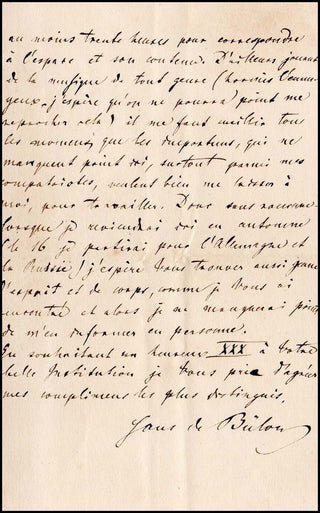 au moins trente heures pour correspondre
à l'espace et son contenu. D'ailleurs jouant
de la musique de tout genre (hormis l'ennu-
yeux, j'espère qu'on ne pourra point me
reprocher cela) il me faut tous
les moments que les importuns, qui ne
manquent point ici, surtout parmi mes
compatriotes, veulent bien me laisser à
moi, pour travailler. Donc sans rancune
lorsque je reviendrai ici en automne
(le 16 je partirai pour l'Allemagne et
la Russie) j'espère Vous trouver aussi jeune
d'esprit et de corps, comme je Vous ai
et alors je ne manquerai point
de m'en informer en personne.
En souhaitant un heureux XXX à Votre
belle Institution je Vous prie d'agréer
mes complimens les plus distingués.
Hans de Bülow